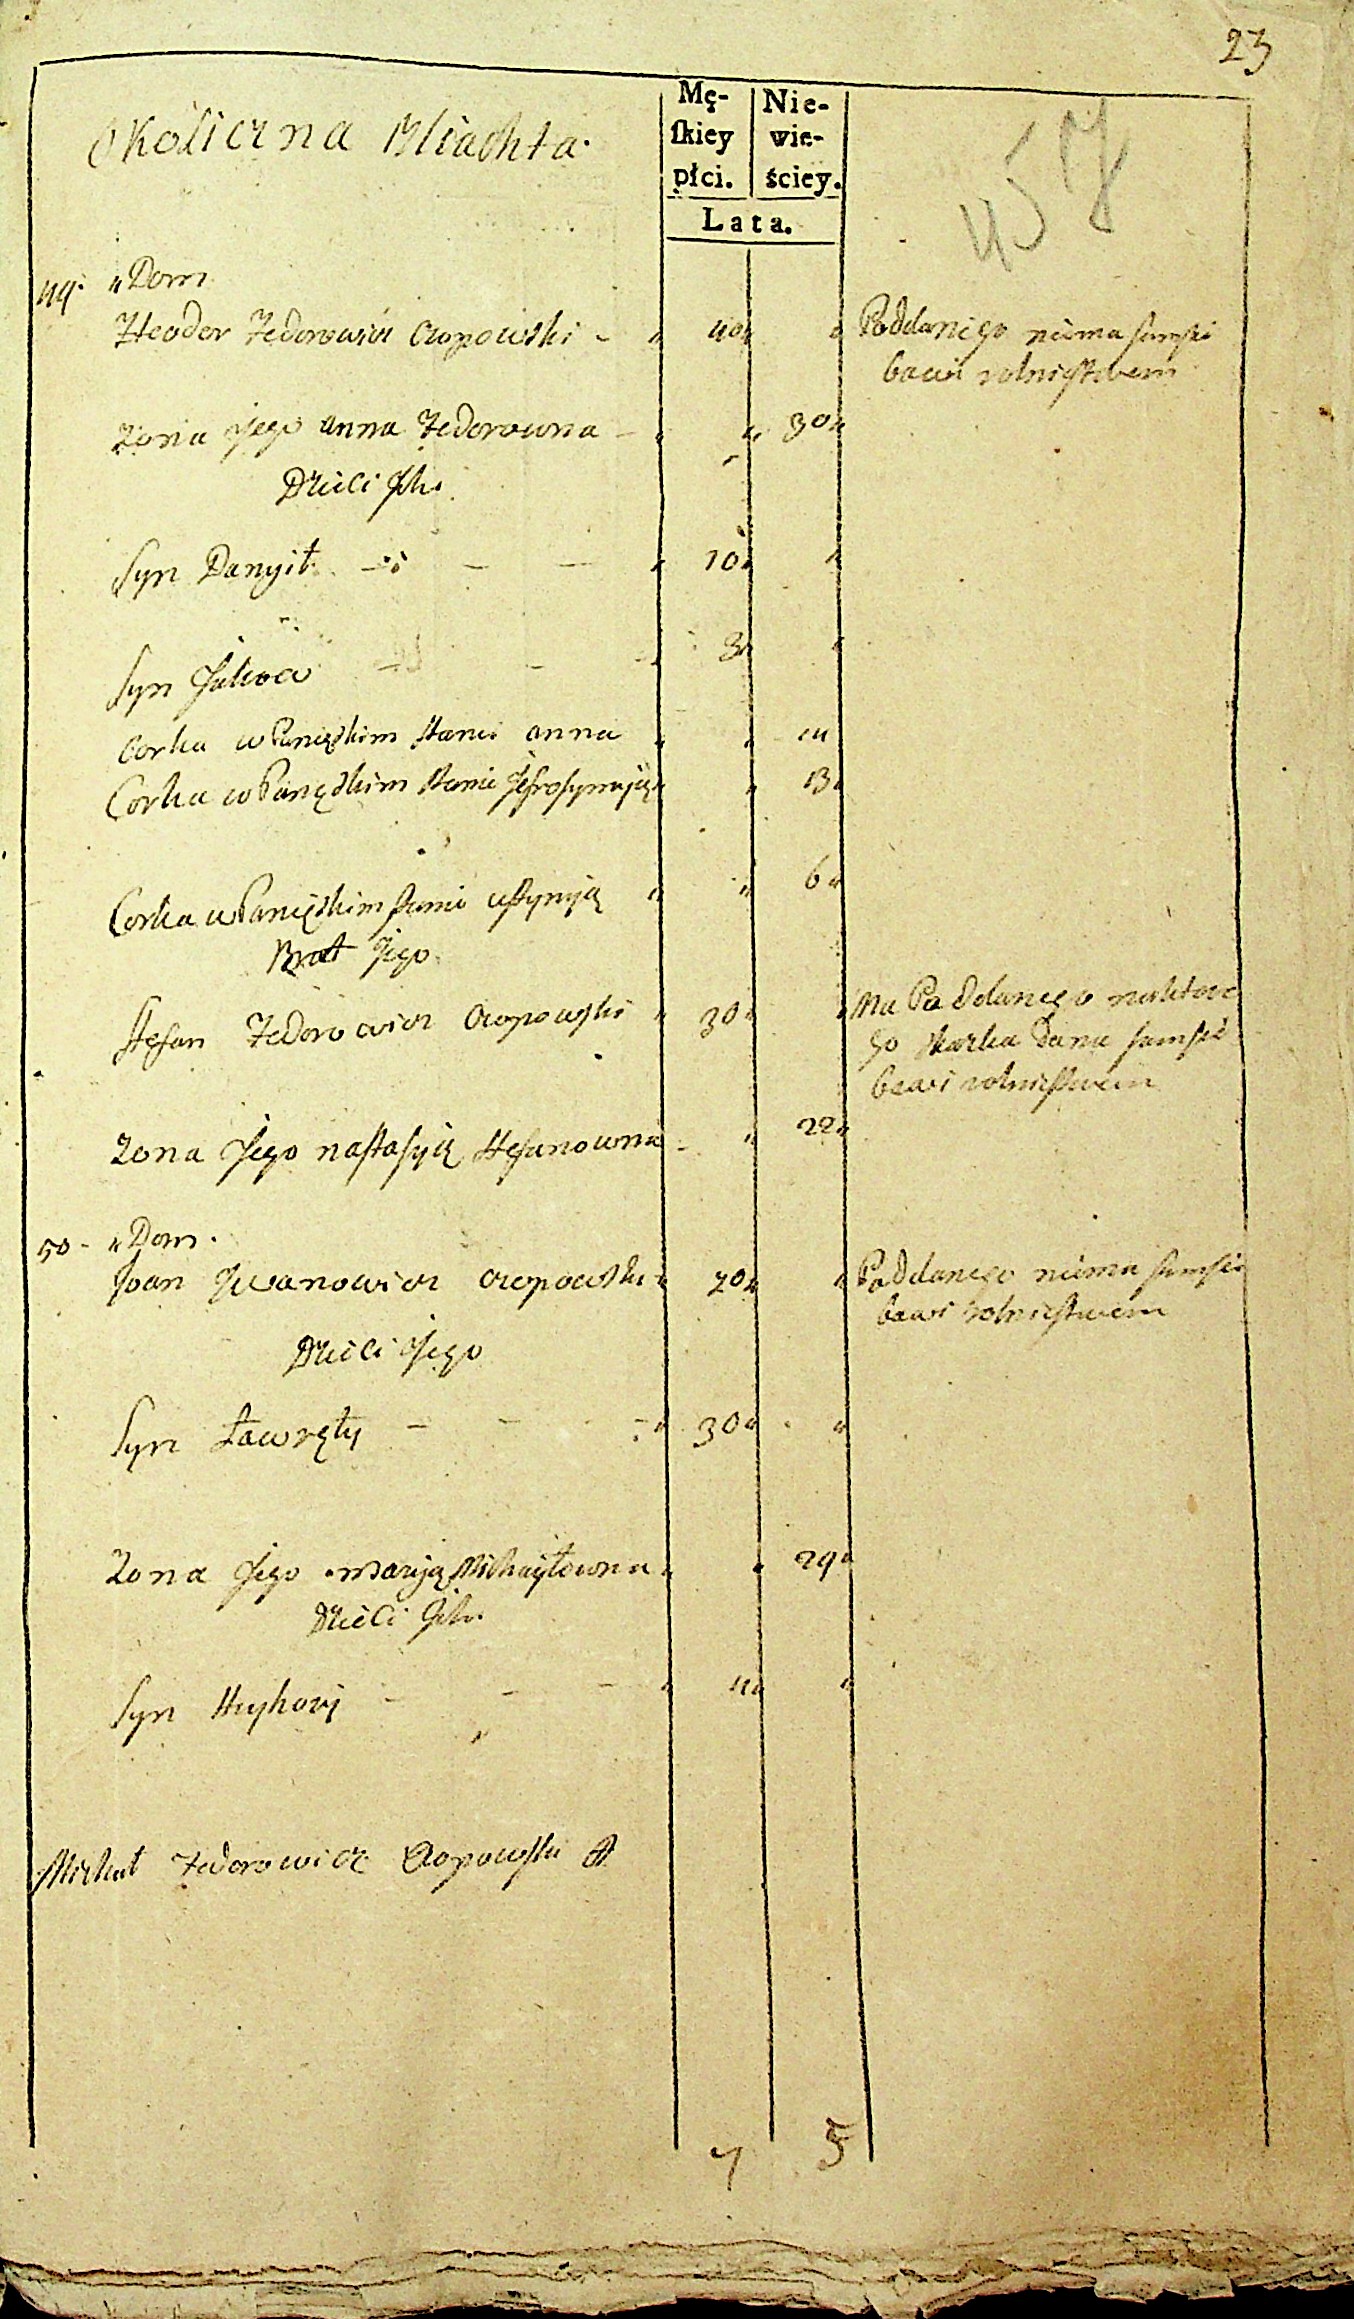 23
Okoliczna Szlachta.
Mę-
skiey
płci.
Nie-
wie-
ściey.
Lata.
457
49. „ Dom
Theodor Fedorowicz Czopowski - „ 40 „ „ Poddanego niema sam się
bawi rolnictwem
Zona Jego Anna Fedorowna - „ „ 30 „
Dzieci Ich.
Syn Danyił - - - „ 10 „ „
Syn Jakow - - - „ 3 „ „
Corka w Panięskim stanie Anna „ „ 14
Corka w Panięskim stanie Jefrosyniją „ „ 13 „
Corka w Panięskim stanie Ustyniją „ „ 6 „
Brat Jego.
Stefan Fedorowicz Czopowski „ 30 „ „ Ma Poddanego
go skazka Dana sam się
bawi rolnictwem
Zona Jego Nastasyią Stefanowna - „ 22 „
50 - „ Dom.
Joan Iwanowicz Czopowski „ 70 „ „ Poddanego niema sam się
bawi rolnictwem
Dzieci Jego
Syn Ławręty - - - „ 30 „ „
Zona Jego Maryją Michayłowna „ „ 29 „
Dzieci Ich.
Syn Hryhory - - - „ 4 „ „
Michał Fedorowicz Czopowski
7 5